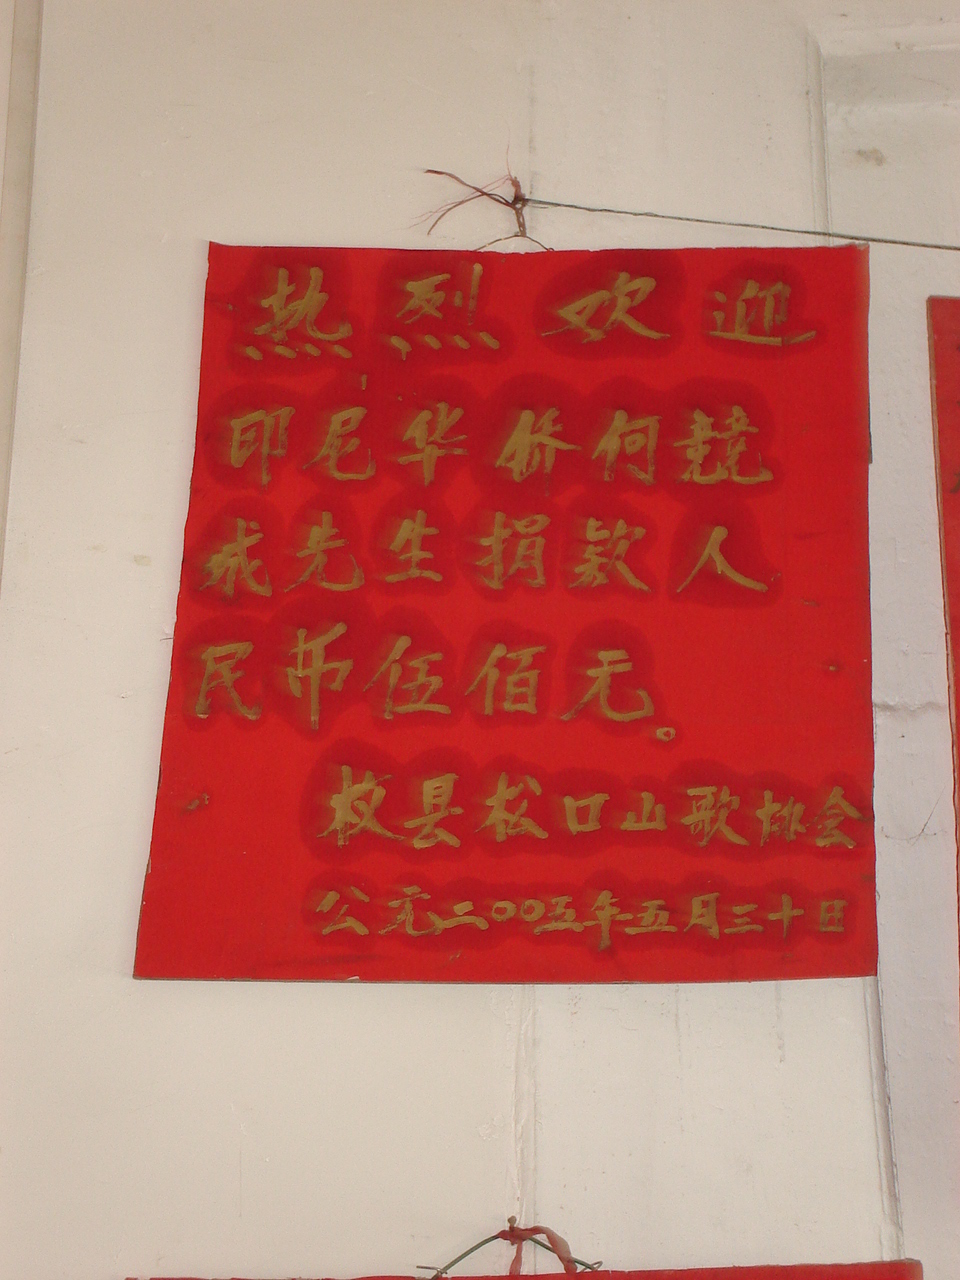 热烈欢迎
印尼华侨何競
戒先生捐款人
民币伍佰元。
梅县松口山歌协会
公元二〇〇五年五月三十日